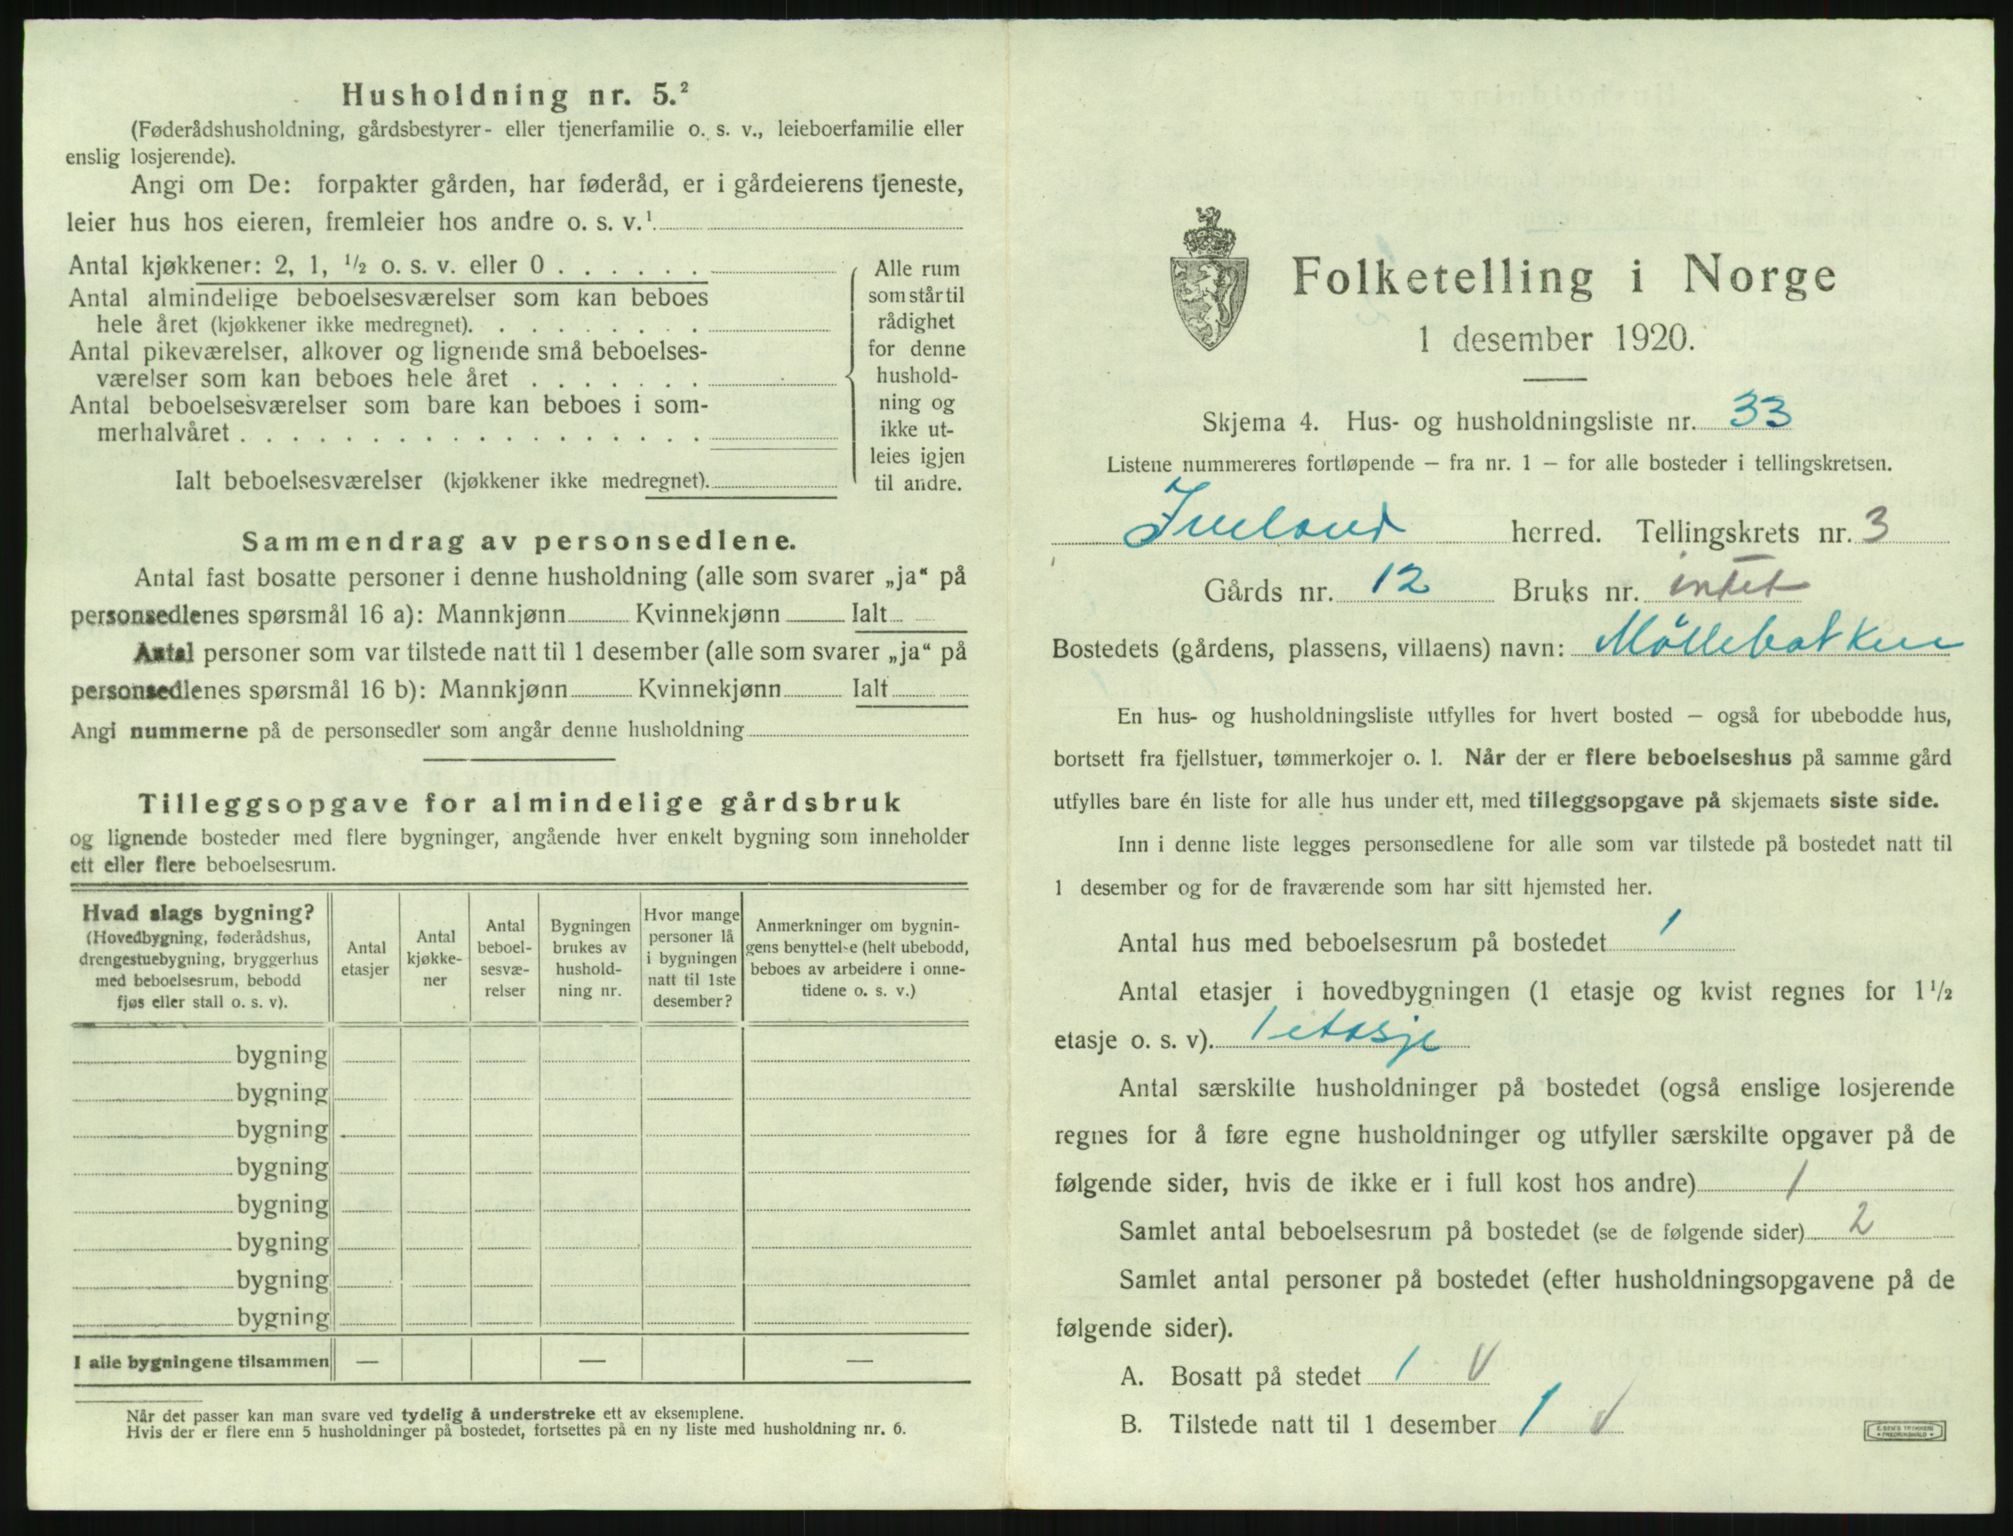 Husholdning nr. 5.²
(Føderådshusholdning, gårdsbestyrer- eller tjenerfamilie o. s. v., leieboerfamilie eller
enslig losjerende).
Angi om De: forpakter gården, har føderåd, er i gårdeierens tjeneste,
leier hus hos eieren, fremleier hos andre o. s. v.¹
Antal kjøkkener: 2, 1, ½ o. s. v. eller 0 . . . . . .
Antal almindelige beboelsesværelser som kan beboes
hele året (kjøkkener ikke medregnet). . . . . . . . .
Antal pikeværelser, alkover og lignende små beboelses-
værelser som kan beboes hele året . . . . . . .
Antal beboelsesværelser som bare kan beboes i som-
merhalvåret . . . . . . . . . . . . . . . . . .
Ialt beboelsesværelser (kjøkkener ikke medregnet).
Alle rum
som står til
rådighet
for denne
hushold-
ning og
ikke ut-
leies igjen
til andre.
Sammendrag av personsedlene.
Antal fast bosatte personer i denne husholdning (alle som svarer „ja“ på
personsedlenes spørsmål 16 a): Mannkjønn Kvinnekjønn Ialt
Antal personer som var tilstede natt til 1 desember (alle som svarer „ja“ på
personsedlenes spørsmål 16 b): Mannkjønn Kvinnekjønn Ialt
Angi nummerne på de personsedler som angår denne husholdning
Tilleggsopgave for almindelige gårdsbruk
og lignende bosteder med flere bygninger, angående hver enkelt bygning som inneholder
ett eller flere beboelsesrum.
Hvad slags bygning?
(Hovedbygning, føderådshus,
drengestuebygning, bryggerhus
med beboelsesrum, bebodd
fjøs eller stall o. s. v).
Antal
etasjer
Antal
kjøkke-
ner
Antal
beboel-
sesvæ-
relser
Bygningen
brukes av
hushold-
ning nr.
Hvor mange
personer lå
i bygningen
natt til 1ste
desember?
Anmerkninger om bygnin-
gens benyttelse (helt ubebodd,
beboes av arbeidere i onne-
tidene o. s. v.)
bygning
bygning
bygning
bygning
bygning
bygning
bygning
bygning
I alle bygningene tilsammen — — —
Når det passer kan man svare ved tydelig å understreke ett av eksemplene.
Hvis der er flere enn 5 husholdninger på bostedet, fortsettes på en ny liste med husholdning nr. 6.
Folketelling i Norge
1 desember 1920.
Skjema 4. Hus- og husholdningsliste nr. 33
Listene nummereres fortløpende — fra nr. 1 — for alle bosteder i tellingskretsen.
Iveland herred. Tellingskrets nr. 3
Gårds nr. 12 Bruks nr. intet
Bostedets (gårdens, plassens, villaens) navn: Möllebakken
En hus- og husholdningsliste utfylles for hvert bosted — også for ubebodde hus,
bortsett fra fjellstuer, tømmerkojer o. l. Når der er flere beboelseshus på samme gård
utfylles bare én liste for alle hus under ett, med tilleggsopgave på skjemaets siste side.
Inn i denne liste legges personsedlene for alle som var tilstede på bostedet natt til
1 desember og for de fraværende som har sitt hjemsted her.
Antal hus med beboelsesrum på bostedet 1
Antal etasjer i hovedbygningen (1 etasje og kvist regnes for 1½
etasje o. s. v). 1 etasje
Antal særskilte husholdninger på bostedet (også enslige losjerende
regnes for å føre egne husholdninger og utfyller særskilte opgaver på de
følgende sider, hvis de ikke er i full kost hos andre) 1
Samlet antal beboelsesrum på bostedet (se de følgende sider) 2
Samlet antal personer på bostedet (efter husholdningsopgavene på de
følgende sider).
A. Bosatt på stedet 1 V
B. Tilstede natt til 1 desember 1 V